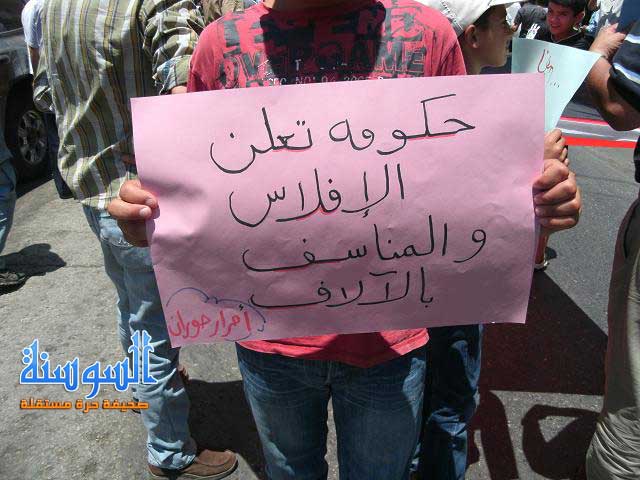 حكومه تعلن
الإفلاس
والمناسف
بالآلاف
أحرار حوران
السوسنة
صحيفة حرة مستقلة